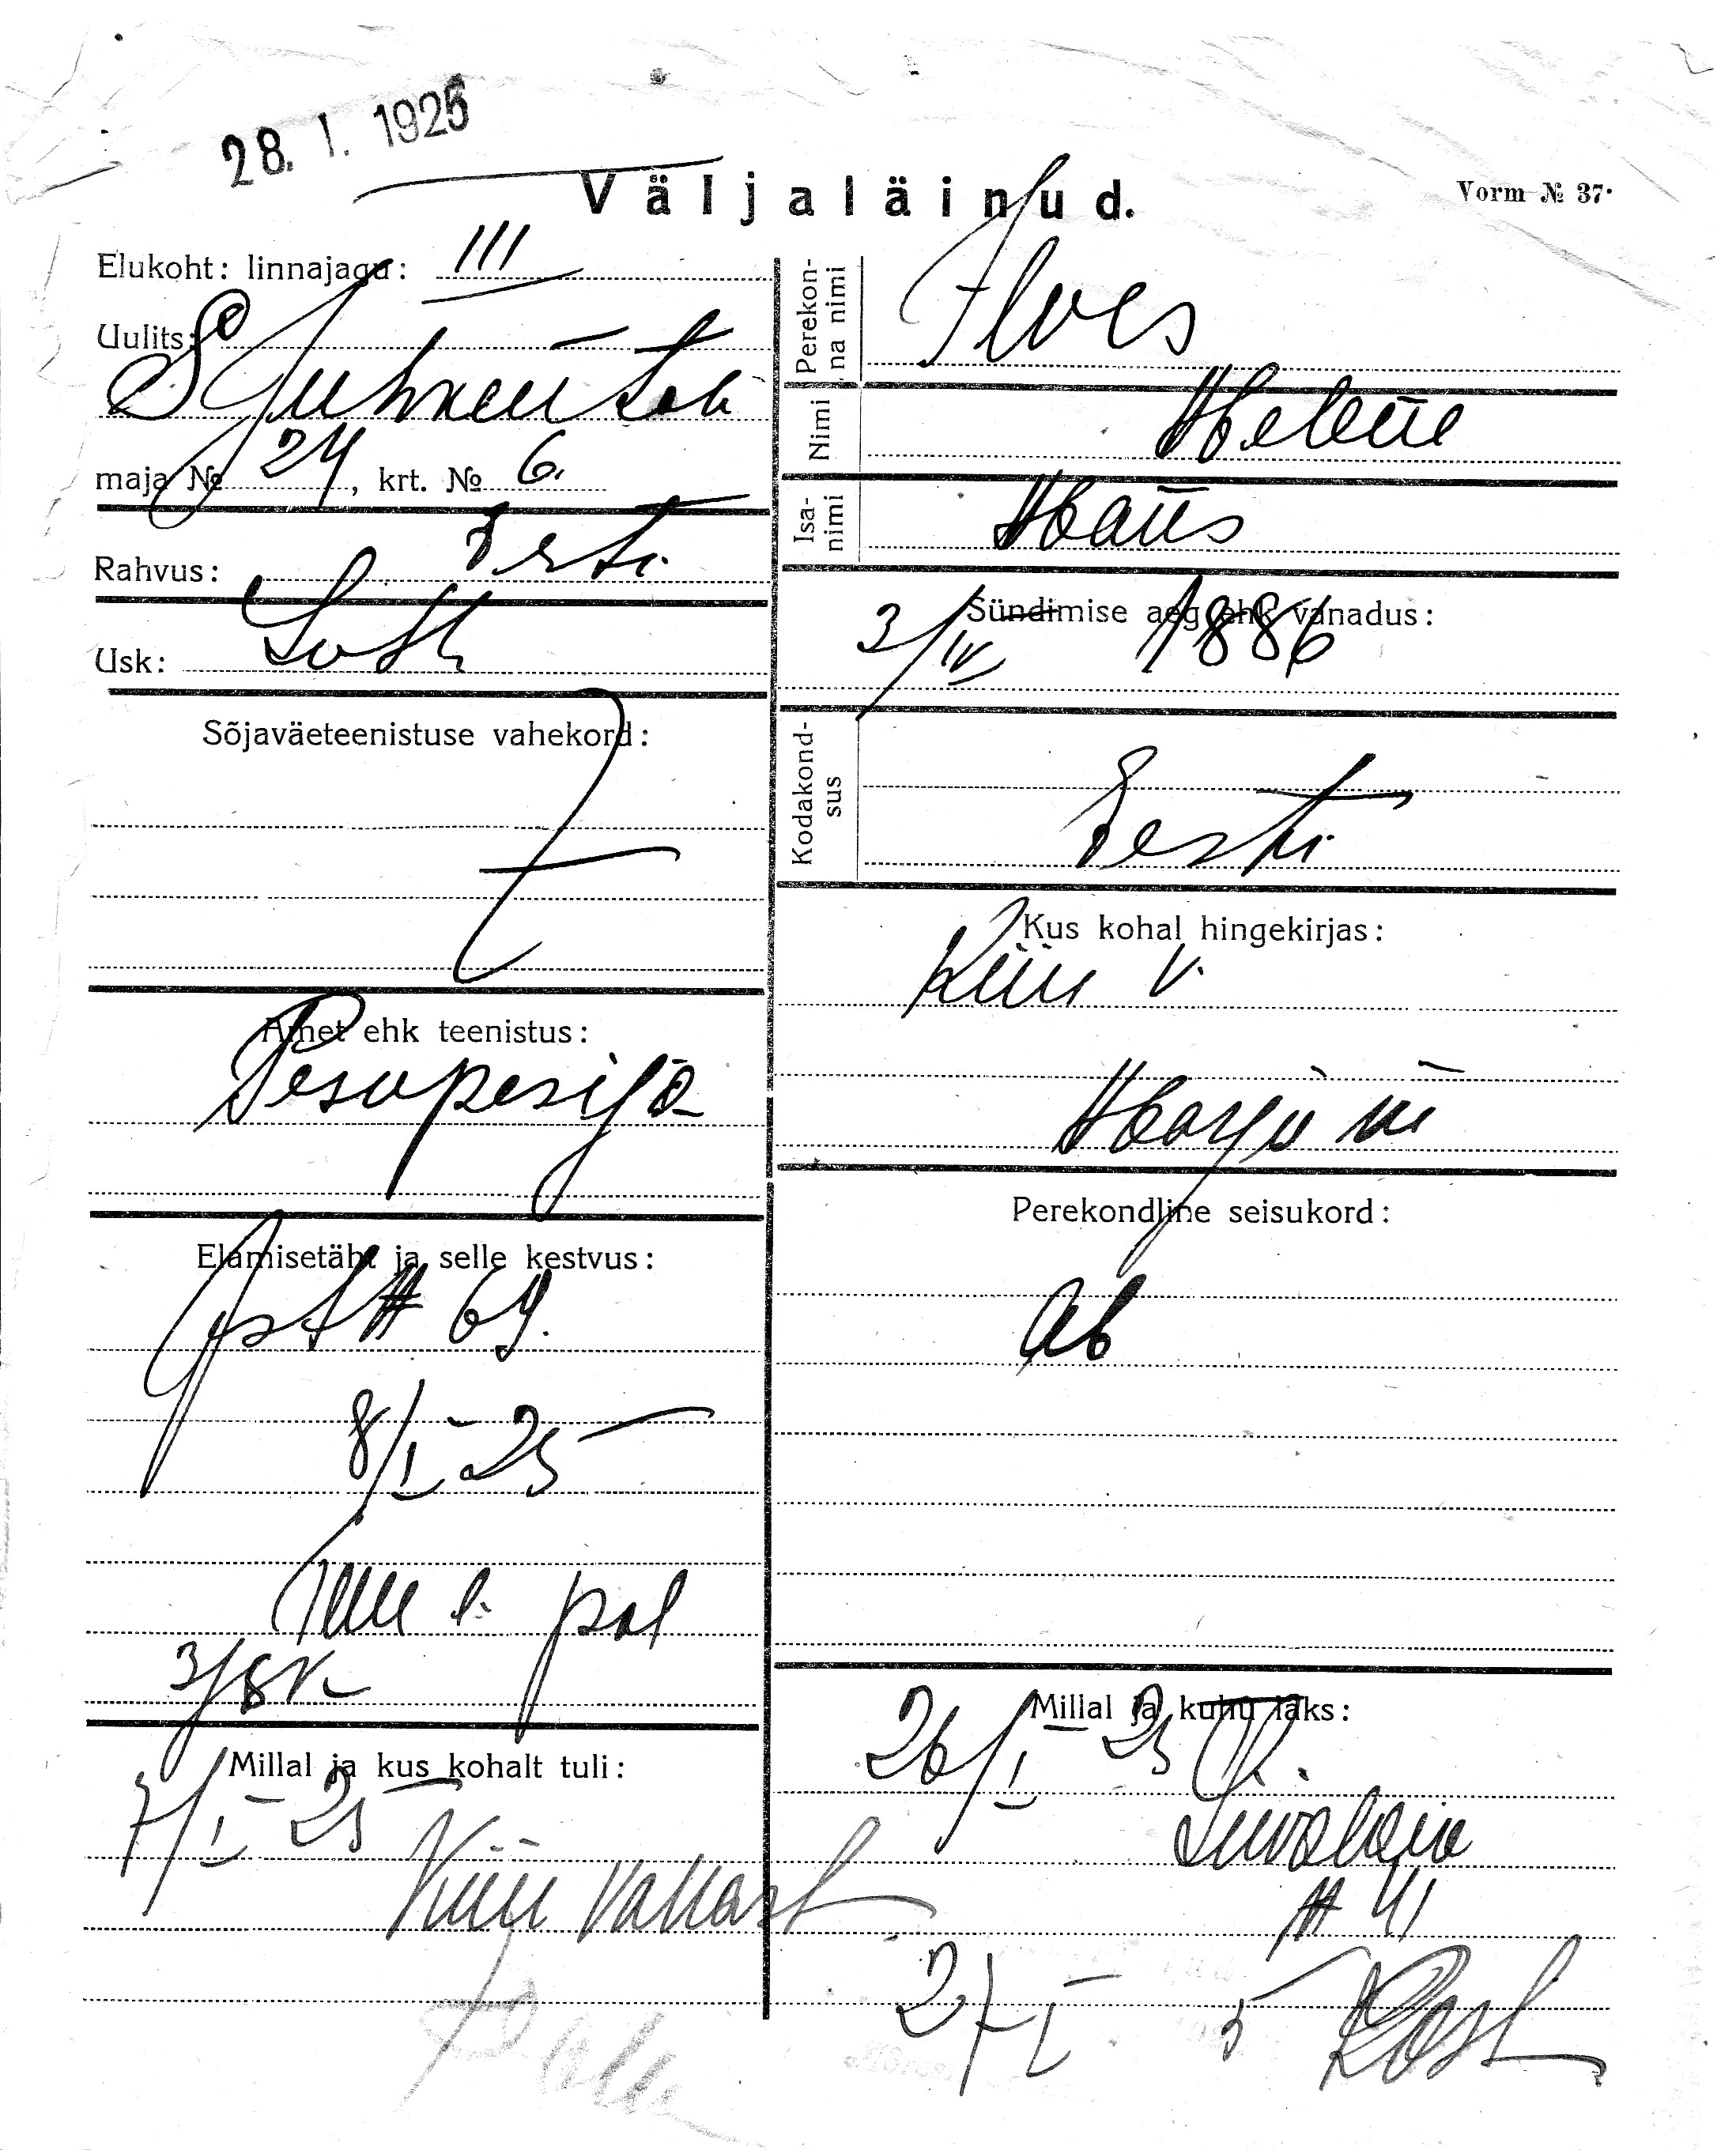 28. I. 1925
Väljaläinud.
Vorm № 37.
Elukoht: linnajagu: III
Uulits: S Juhkentali
maja № 24, krt. № 6.
Rahvus: Eesti
Usk: Luth
Sõjaväeteenistuse vahekord:
Amet ehk teenistus:
Pesupesija
Elamisetäht ja selle kestvus:
pst № 69.
8/I 25
pol
Millal ja kus kohalt tuli:
7/I 25
Kiiu vallast
Perekonna nimi
Ilves
Nimi Helene
Isanimi Hans
Sündimise aeg ehk vanadus:
3/IV 1886
Kodakondsus
Eesti
Kus kohal hingekirjas:
Kiiu v.
Harju m
Perekondline seisukord:
ab
Millal ja kuhu läks:
26/I 25
Liivalaia
№ 41
27 I 5